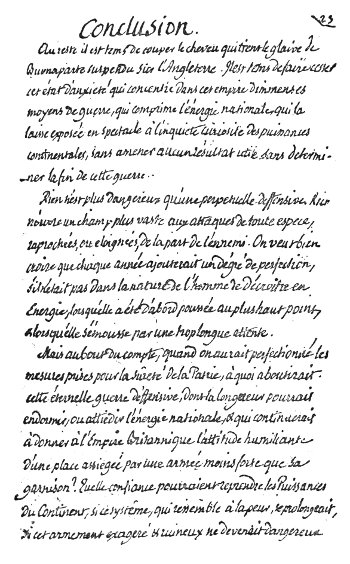 23
Conclusion.
Au reste il est tems de couper le cheveu qui tient le glaive de
Buonaparte suspendu sur l'Angleterre. Il est tems de faire cesser
cet état d'anxiété qui concentre dans cet empire d'immenses
moyens de guerre, qui comprime l'énergie nationale, qui la
laisse exposée en spectacle à l'inquiète curiosité des puissances
continentales, sans amener aucun résultat utile, sans determi-
-ner la fin de cette guerre.
Rien n'est plus dangereux qu'une perpetuelle deffensive. Rien
n'ouvre un champ plus vaste aux attaques de toute espece,
raprochées, ou éloignées, de la part de l'ennemi. On veut bien
croire que chaque année ajouterait un dégré de perfection,
s'il n'était pas dans la nature de l'homme de décroitre en
Energie, lorsqu'elle a été d'abord poussée au plus haut point,
& lorsqu'elle s'émousse par une trop longue attente.
Mais au bout du compte, quand on aurait perfectionné les
mesures prises pour la sureté de la Patrie, à quoi aboutirait
cette éternelle guerre deffensive, dont la longueur pourrait
endormir, ou attiedir l'énergie nationale, & qui continuerait
à donner à l'Empire Britannique l'attitude humiliante
d'une place assiegée par une armée moins forte que sa
garnison? Quelle confiance pourraient reprendre les Puissances
du Continent, si ce systeme, qui ressemble à la peur, se prolongeait,
si cet armement exageré & ruineux ne devenait dangereux